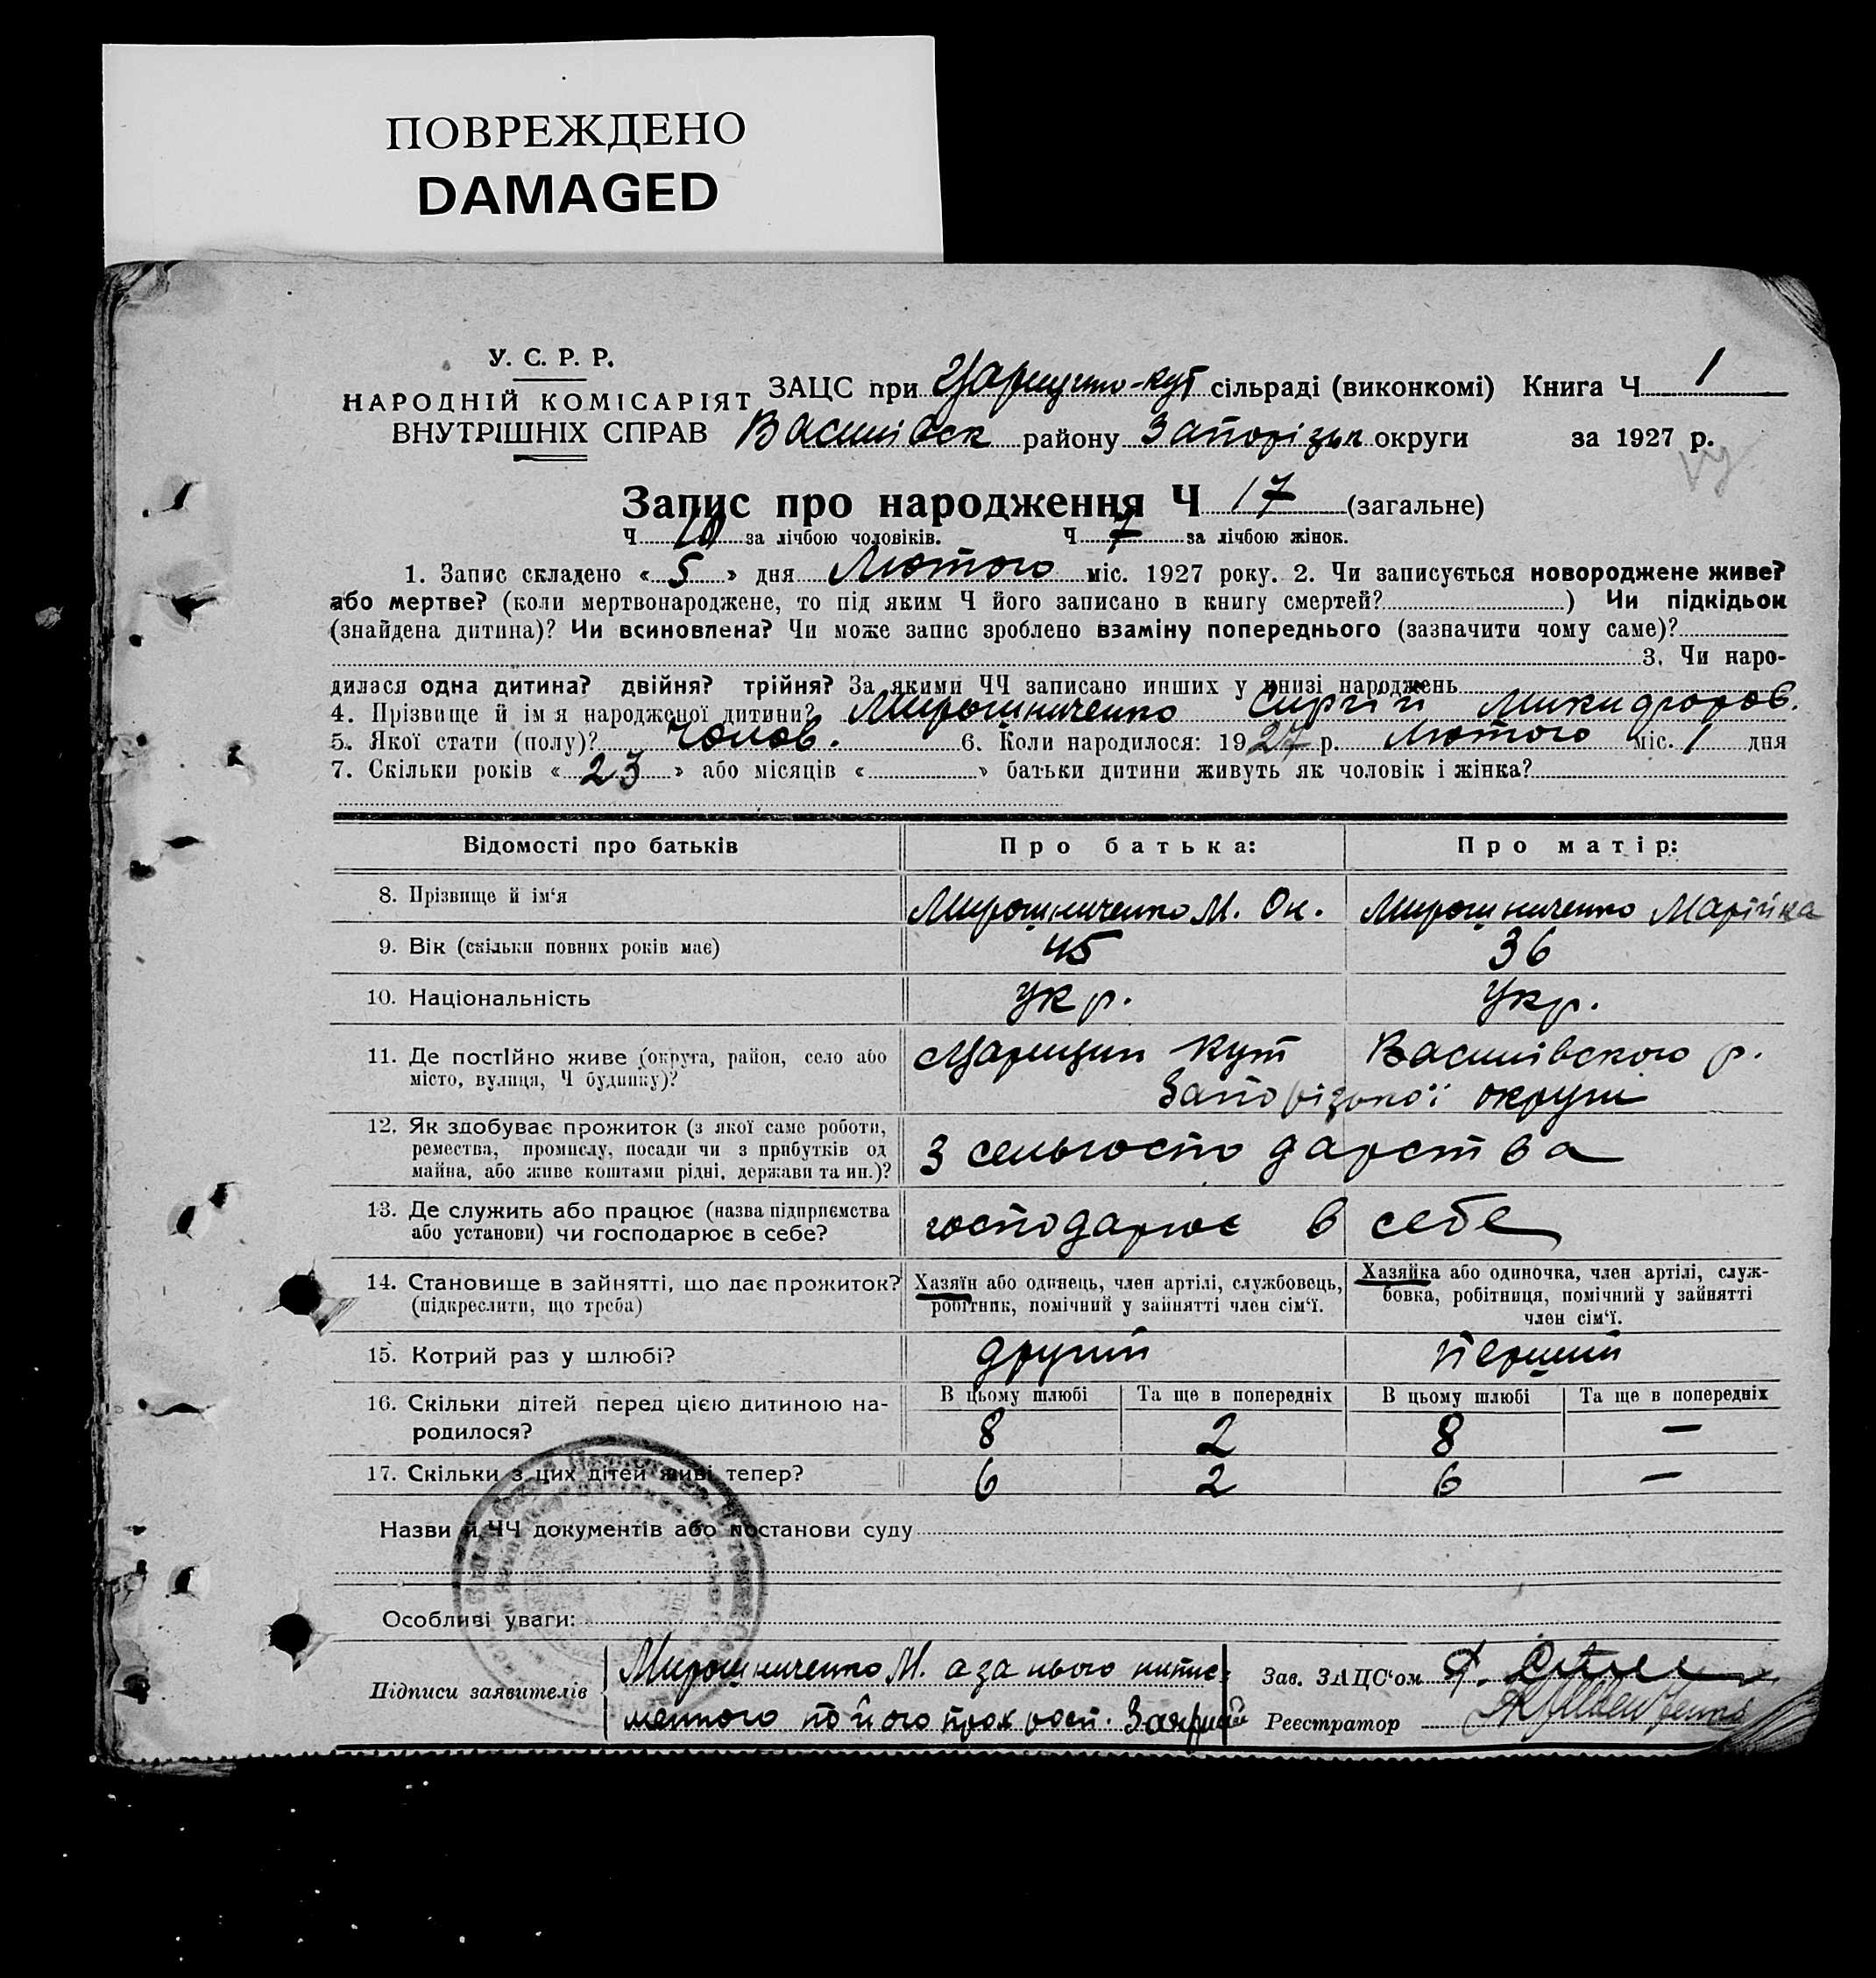 ПОВРЕЖДЕНО
DAMAGED
У. С. Р. Р.
НАРОДНІЙ КОМІСАРІЯТ
ВНУТРІШНІХ СПРАВ
ЗАЦС при Царицино-Кут сільраді (виконкомі) Книга Ч 1
Василівськ району Запорізьк округи за 1927 р.
Запис про народження Ч 17 (загальне)
Ч 10 за лічбою чоловіків. Ч 7 за лічбою жінок.
1. Запис складено « 5 » дня Лютого міс. 1927 року. 2. Чи записується новороджене живе?
або мертве? (коли мертвонароджене, то під яким Ч його записано в книгу смертей? ) Чи підкідьок
(знайдена дитина)? Чи всиновлена? Чи може запис зроблено взаміну попереднього (зазначити чому саме)?
3. Чи наро-
дилася одна дитина? двійня? трійня? За якими ЧЧ записано инших у книзі народжень
4. Прізвище й ім я народженої дитини? Мирошниченко Сиргій Микифоров.
5. Якої стати (полу)? Чолов. 6. Коли народилося: 1927 р. Лютого міс. 1 дня
7. Скільки років « 23 » або місяців « » батьки дитини живуть як чоловік і жінка?
Відомості про батьків Про батька: Про матір:
8. Прізвище й ім‘я Мирошниченко М. Он. Мирошниченко Марійка
9. Вік (скільки повних років має) 45 36
10. Національність Укр. Укр.
11. Де постійно живе (округа, район, село або
місто, вулиця, Ч будинку)?
Царицин Кут Василівского р.
Запорізької округи
12. Як здобуває прожиток (з якої саме роботи,
ремества, промислу, посади чи з прибутків од
майна, або живе коштами рідні, держави та ин.)?
З сельгосподарства
13. Де служить або працює (назва підприємства
або установи) чи господарює в себе?
господарює в себе
14. Становище в зайнятті, що дає прожиток?
(підкреслити, що треба)
Хазяїн або одинець, член артілі, службовець,
робітник, помічний у зайнятті член сім‘ї.
Хазяйка або одиночка, член артілі, служ-
бовка, робітниця, помічний у зайнятті
член сім‘ї.
15. Котрий раз у шлюбі? другий перший
16. Скільки дітей перед цією дитиною на-
родилося?
В цьому шлюбі Та ще в попередніх В цьому шлюбі Та ще в попередніх
8 2 8 —
17. Скільки з цих дітей живі тепер? 6 2 6 —
Назви й ЧЧ документів або постанови суду
Особливі уваги:
Підписи заявителів
Мирошниченко М. а за нього нипис-
менного по його прох росп.
Зав. ЗАЦС‘ом
Реєстратор